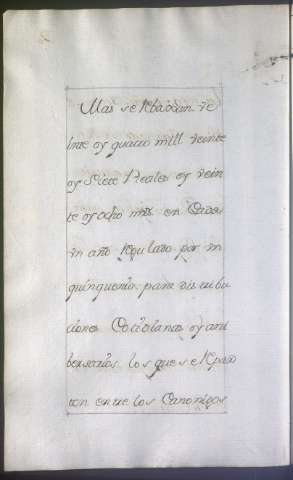 Mas se Rebaxan ve
inte oy quatro mill veinte
oy Siete Reales oy vein
te oy ocho mrs. en Cada
un año Regulado por un
quinquenio. para distribu
ciones Cotidianas oy ani
bersarios los que se Repar
ten entre los Canonigos